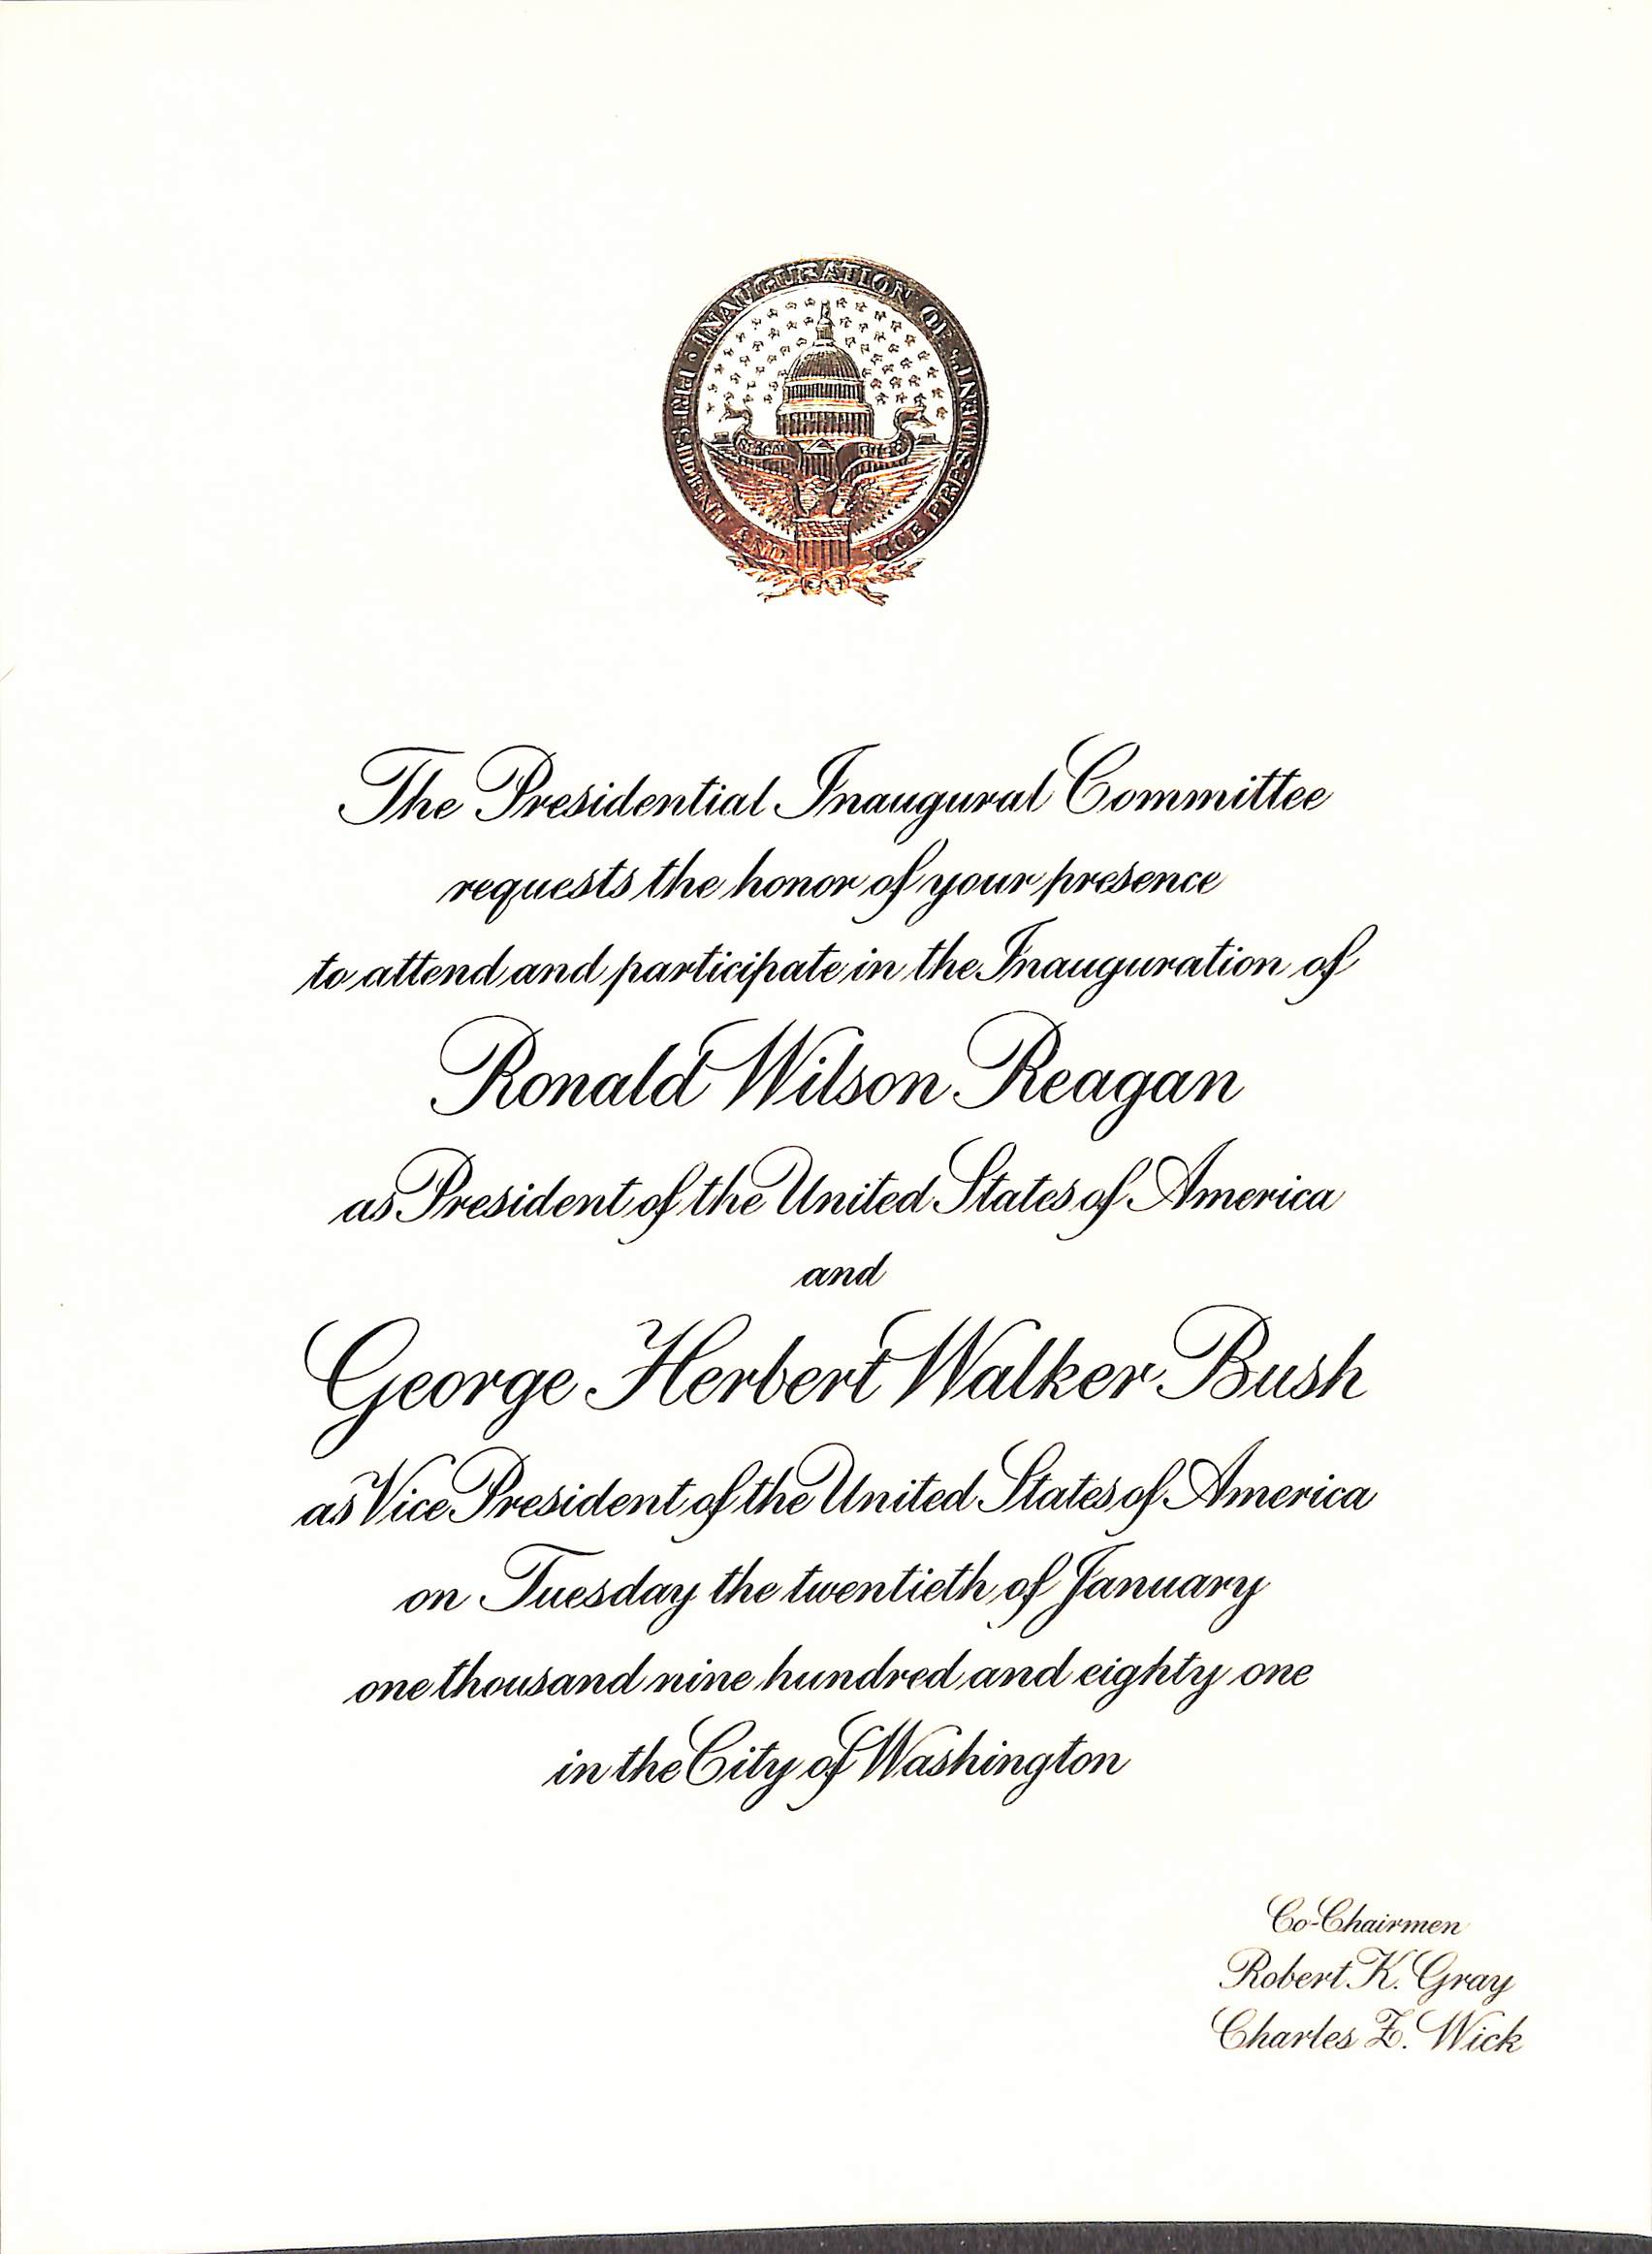 INAUGURATION OF
PRESIDENT AND VICE PRESIDENT
The Presidential Inaugural Committee
requests the honor of your presence
to attend and participate in the Inauguration of
Ronald Wilson Reagan
as President of the United States of America
and
George Herbert Walker Bush
as Vice President of the United States of America
on Tuesday the twentieth of January
one thousand nine hundred and eighty one
in the City of Washington
Co-Chairmen
Robert K. Gray
Charles Z. Wick